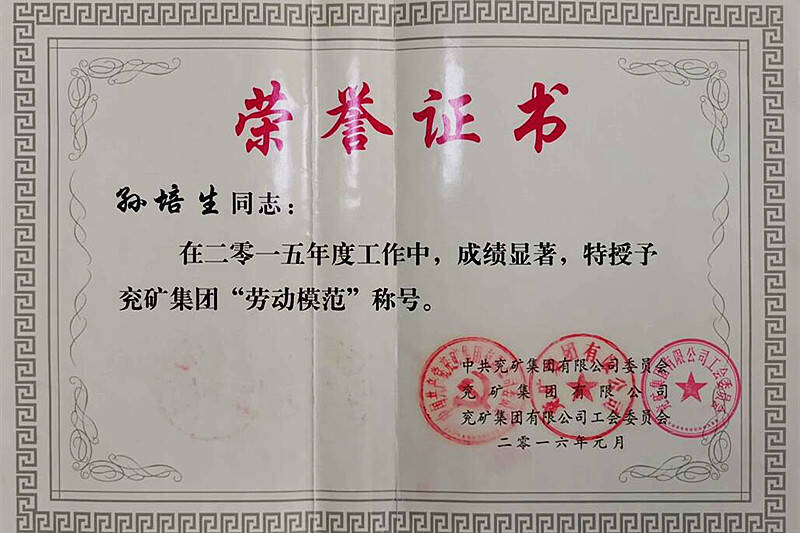 荣誉证书
孙培生同志：
在二零一五年度工作中，成绩显著，特授予
兖矿集团“劳动模范”称号。
中共兖矿集团有限公司委员会
兖矿集团有限公司
兖矿集团有限公司工会委员会
二零一六年元月